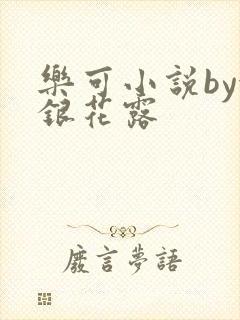 樂可小說by
銀花露
廢言夢語